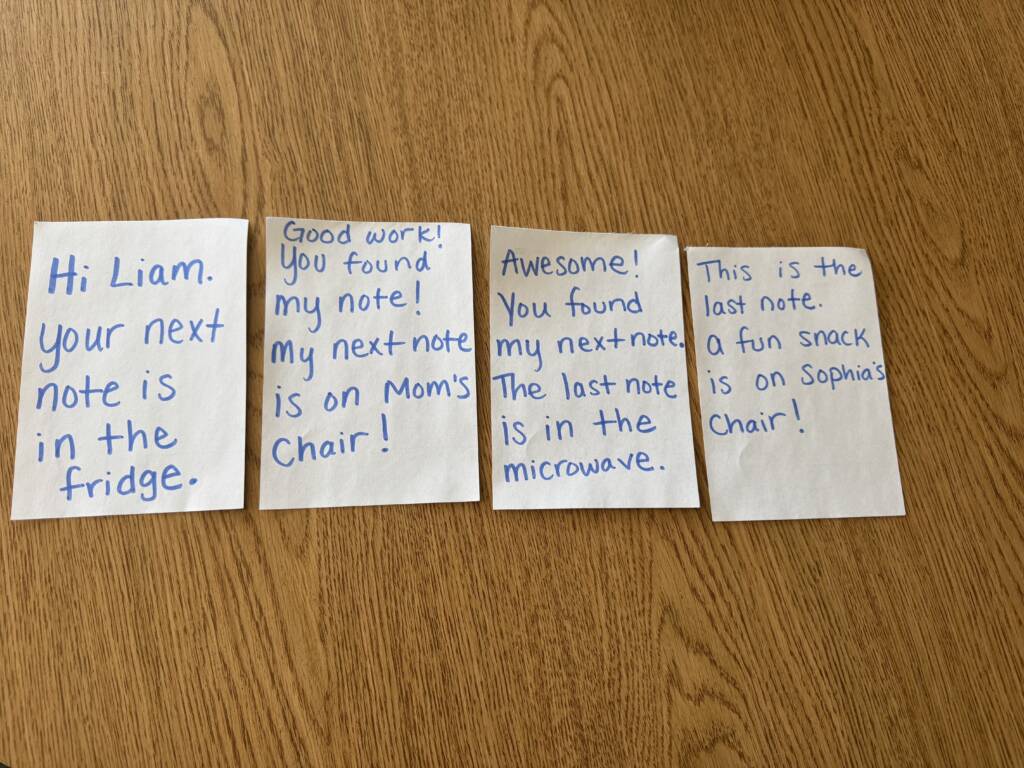 Hi Liam.
your next
note is
in the
fridge.
Good work!
You found
my note!
My next note
is on Mom's
Chair!
Awesome!
You found
my next note.
The last note
is in the
microwave.
This is the
last note.
a fun snack
is on Sophia's
Chair!